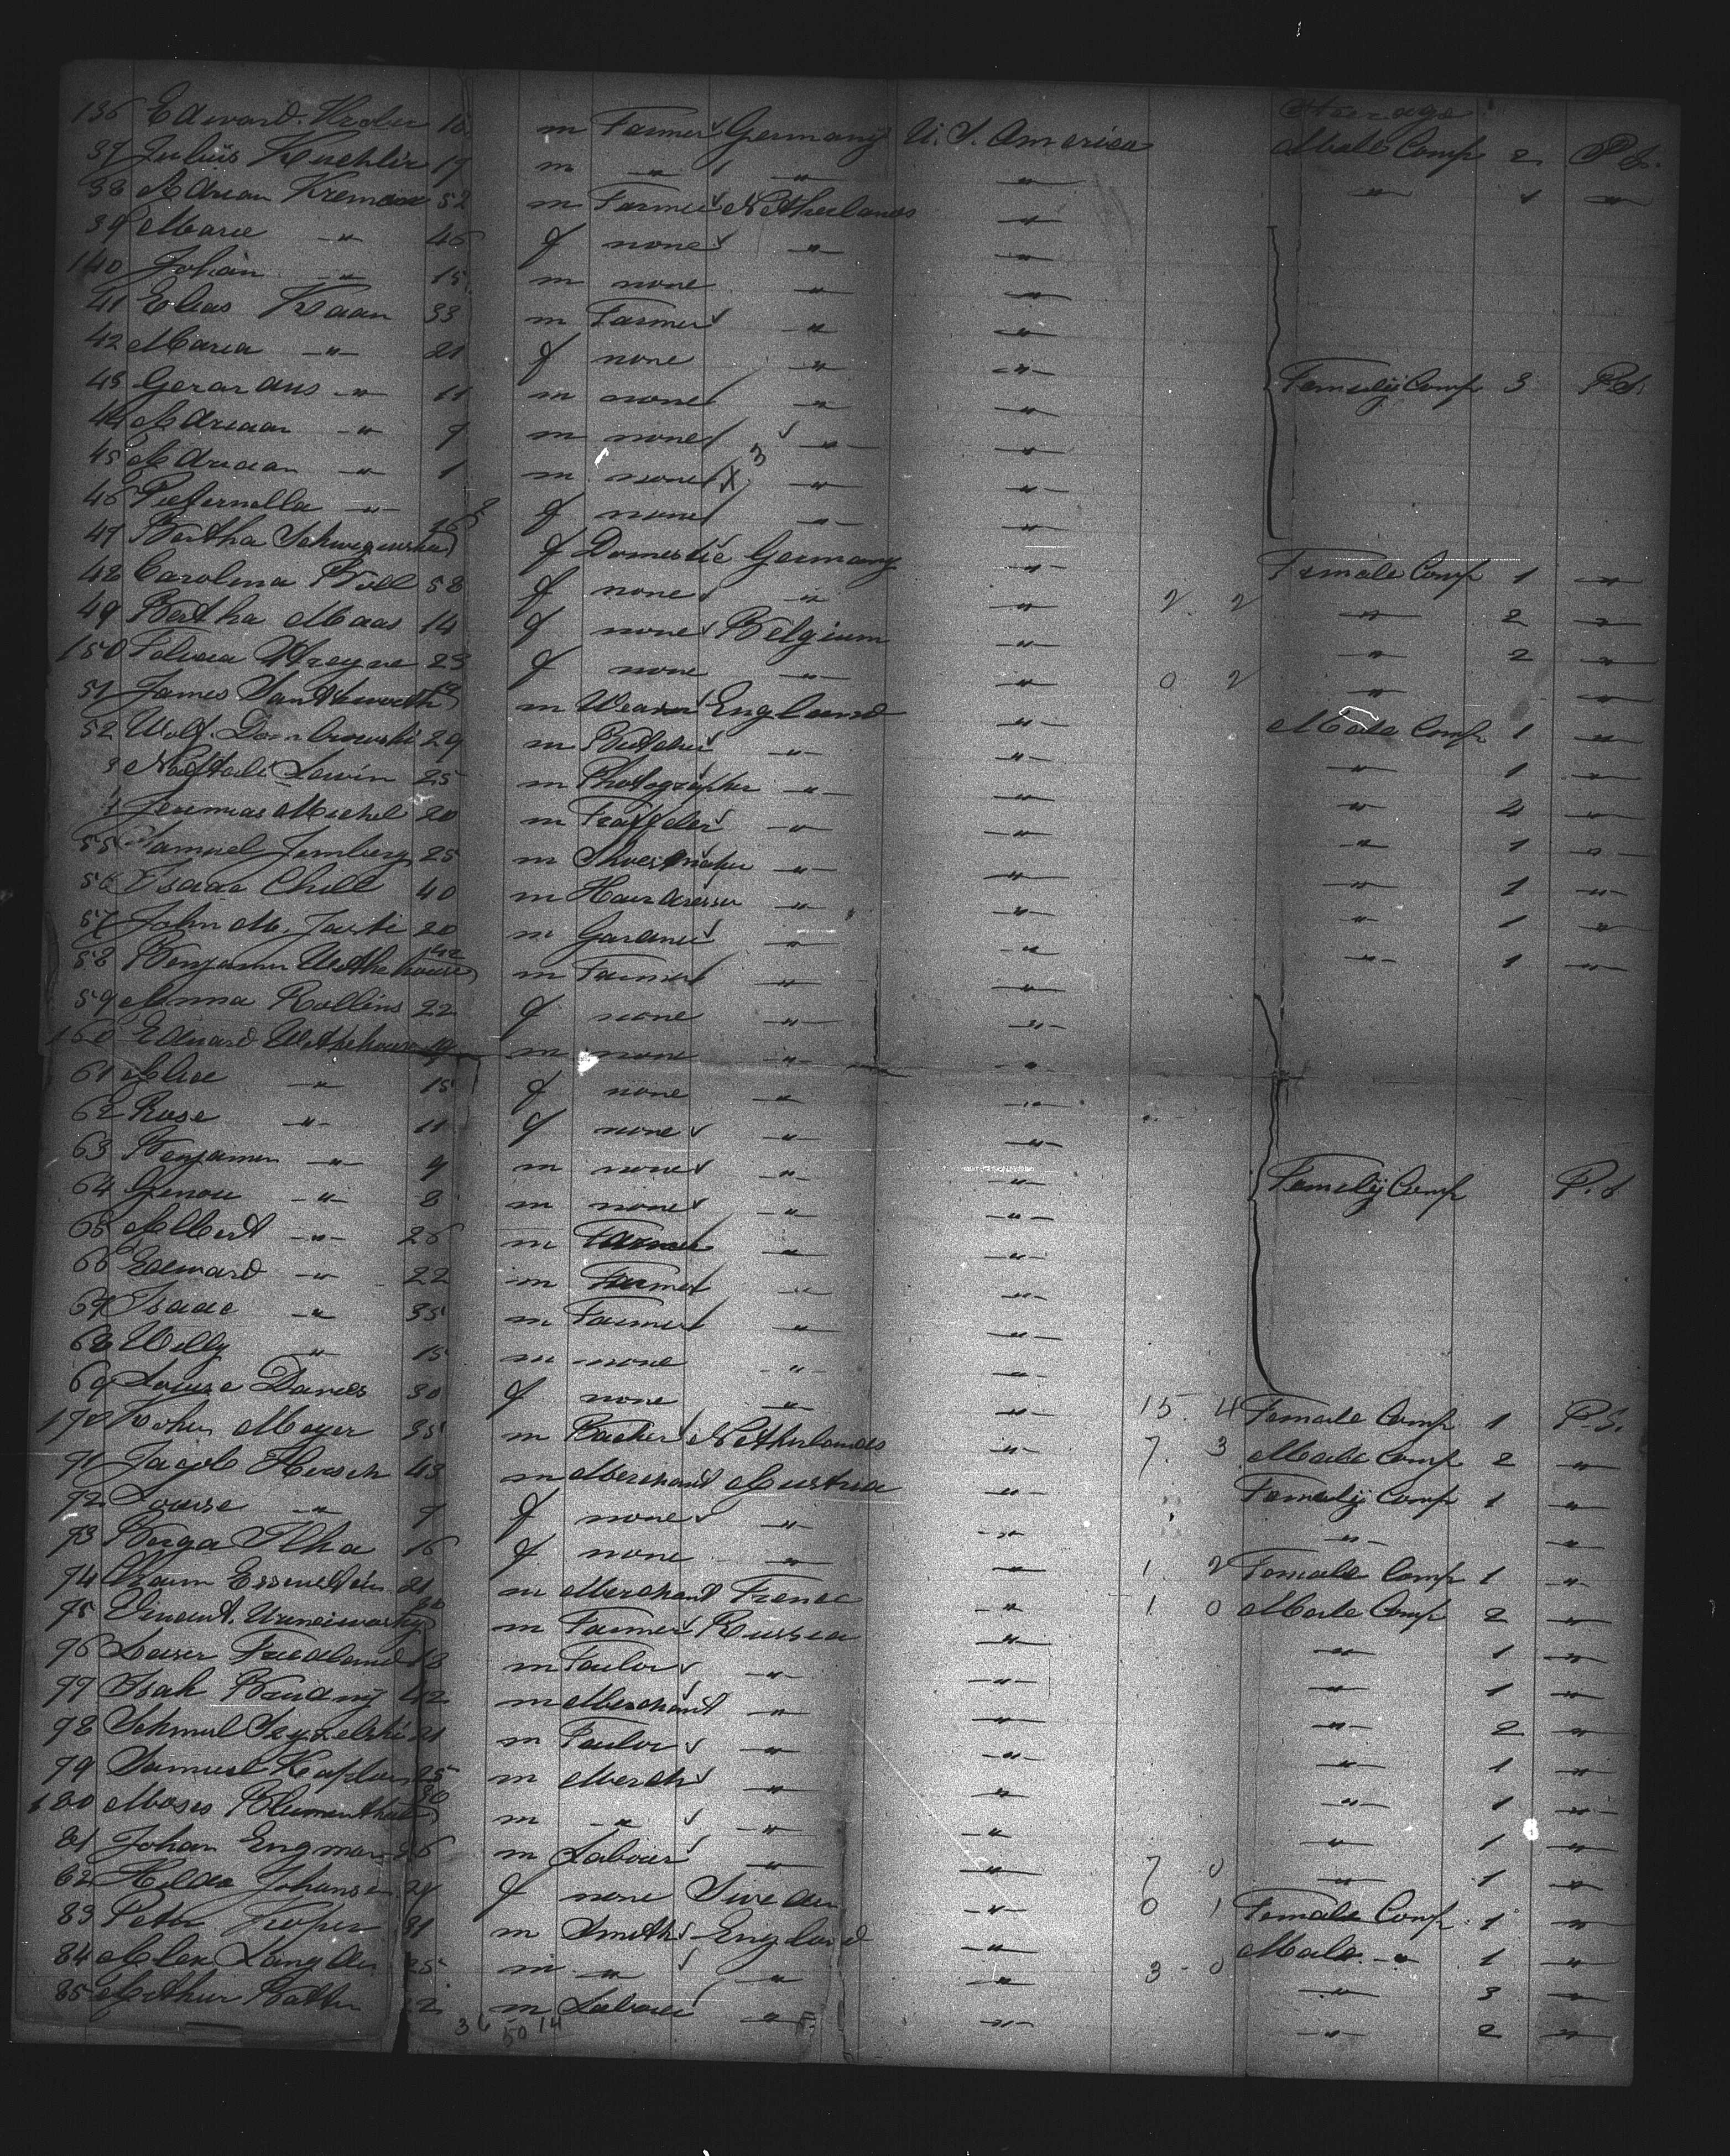 Steerage
136 Edward 18 m Farmer Germany U. S. America Male Comp 2 P.S.
37 Julius Kuehler 17 m -"- -"- -"- -"- 1 -"-
38 Adrian Kreman 52 m Farmer Netherlands -"-
39 Marie -"- 46 f none -"- -"-
140 Johan -"- 15 m none -"- -"-
41 Elias Kaan 33 m Farmer -"- -"-
42 Maria -"- 21 f none -"- -"-
43 Gerardus -"- 11 m none -"- -"- Family Comp 3 P.S.
44 Adriaan -"- 9 m none -"- -"-
45 Adriaan -"- 1 m none X 3 -"- -"-
46 Piefernella -"- f none -"- -"-
47 Bertha f Domestic Germany -"- Female Comp 1 -"-
48 Carolina Boll 58 f none -"- -"- 2 2 -"- 2 -"-
49 Bertha Maas 14 f none Belgium -"- -"- 2 -"-
150 23 f none -"- -"- 0 2 -"- -"-
51 James m Weaver England -"- Male Comp 1 -"-
52 Wolf Dombrowski 29 m Butcher -"- -"- -"- 1 -"-
3 Naftali Lewin 25 m Photographer -"- -"- -"- 4 -"-
Jeremias Michel 20 m -"- -"- -"- 1 -"-
55 Samuel Jemberg 25 m Shoesmaker -"- -"- -"- 1 -"-
56 Isaac Chill 40 m Hairdresser -"- -"- -"- 1 -"-
57 John M. 20 m Gardner -"- -"- -"- 1 -"-
58 Benjamin Wethehouse 42 m Farmer -"- -"-
59 Anna Rollins 22 f none -"- -"-
160 Eduard Wethehouse 19 m none -"- -"-
61 Alice -"- 15 f none -"- -"-
62 Rose -"- 11 f none -"- -"-
63 Benjamin -"- 9 m none -"- -"- Family Comp P.S.
64 -"- 8 m none -"- -"-
65 Albert -"- 26 m Farmer -"- -"-
66 Edward -"- 22 m Farmer -"- -"-
67 Isaac -"- 35 m Farmer -"- -"-
68 Willy -"- 15 m none -"- -"-
69 Louise Davies 30 f none -"- -"- 15. 4 Female Comp 1 P.S.
170 Meyer 35 m Backer Netherlands -"- 7. 3 Male Comp 2 -"-
71 Jacob Hirsch 43 m Merchant Austria -"- Family Comp 1 -"-
72 Louise -"- 9 f none -"- -"- -"- -"-
73 Berga Ilka 16 f none -"- -"- 1. 2 Female Comp 1 -"-
74 21 m Merchant France -"- 1. 0 Male Comp 2 -"-
75 Vincent 30 m Farmer Russia -"- -"- 1 -"-
76 Leiser Friedland 18 m Tailor -"- -"- -"- 1 -"-
77 Isak 42 m Merchant -"- -"- -"- 2 -"-
78 Schmul 21 m Tailor -"- -"- -"- 1 -"-
79 Samuel Kaplan 25 m Merch -"- -"- -"- 1 -"-
180 Moses Blumenthal 30 m -"- -"- -"- -"- 1 -"-
81 Johan Engman 26 m Labour -"- -"- 7 0 -"- 1 -"-
82 Hilda Johanson 21 f none Sweden -"- 0 1 Female Comp 1 -"-
83 Peter 31 m Smith England -"- Male -"- 1 -"-
84 Alex 25 m -"- -"- -"- 3 - 0 -"- 3 -"-
85 Arthur 2 m Labour -"- -"- -"- 2 -"-
36 50 14